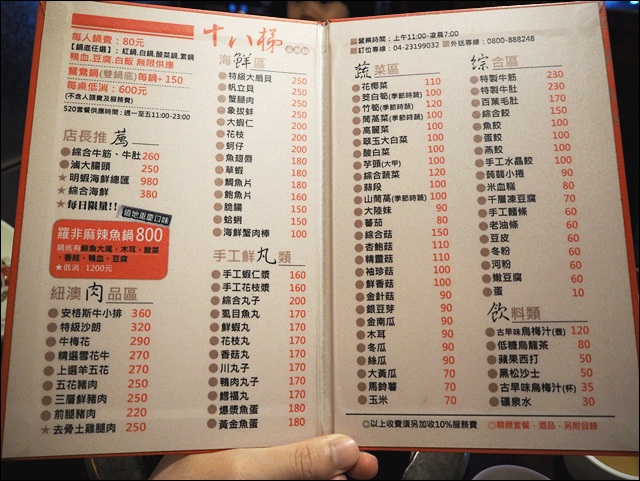 每人鍋費：80元
【鍋底任選】：紅鍋.白鍋.酸菜鍋.素鍋
鴨血.豆腐.白飯 無限供應
鴛鴦鍋(雙鍋底)每鍋+150
每桌低消：600元
(不含人頭費及服務費)
520套餐供應時間：週一至五11:00-23:00
店長推薦
綜合牛筋、牛肚260
滷大腸頭 250
★明蝦海鮮總匯 980
★綜合海鮮 380
★每日限量!!
道地重慶口味
羅非麻辣魚鍋800
鍋底有鮮魚大尾、木耳、酸菜
、香菇、鴨血、豆腐
★低消：1200元
紐澳肉品區
安格斯牛小排 360
特級沙朗 320
牛梅花 290
精選雪花牛 270
上選羊五花 270
五花豬肉 250
三層鮮豬肉 250
前腿豬肉 220
★去骨土雞腿肉 250
十八梯
海鮮區
特級大扇貝 250
帆立貝 250
蟹腿肉 250
象拔蚌 250
大蝦仁 200
花枝 200
蚵仔 200
魚翅唇 180
草蝦 180
鯛魚片 180
鮑魚片 160
脆腸 150
蛤蜊 150
海鮮蟹肉棒 100
手工鮮丸類
手工蝦仁漿 160
手工花枝漿 160
綜合丸子 200
虱目魚丸 170
鮮蝦丸 170
花枝丸 170
香菇丸 170
川丸子 170
鴨肉丸子 170
鱈福丸 170
爆漿魚蛋 180
黃金魚蛋 180
■營業時間：上午11:00-凌晨7:00
■訂位專線：04-23199032 ■外送專線：0800-888248
蔬菜區
花椰菜 110
茭白筍(季節時蔬) 100
竹筍(季節時蔬) 120
茼萵菜(季節時蔬) 100
高麗菜 100
翠玉大白菜 100
酸白菜 100
芋頭(大甲) 100
綜合蔬菜 120
蒜段 100
山茼萵(季節時蔬) 100
大陸妹 90
蕃茄 80
綜合菇 150
杏鮑菇 110
精靈菇 110
袖珍菇 100
鮮香菇 100
金針菇 90
銀豆芽 90
金南瓜 90
木耳 90
冬瓜 90
絲瓜 90
大黃瓜 70
馬鈴薯 70
玉米 70
綜合區
特製牛筋 230
特製牛肚 230
百葉毛肚 170
綜合餃 150
魚餃 100
蛋餃 100
燕餃 100
手工水晶餃 100
蒟蒻小捲 90
米血糕 80
千層凍豆腐 70
手工麵條 60
老油條 60
豆皮 60
冬粉 60
河粉 60
嫩豆腐 60
蛋 10
飲料類
古早味烏梅汁(壺) 120
低糖烏龍茶 80
蘋果西打 50
黑松沙士 50
古早味烏梅汁(杯) 35
礦泉水 30
◎以上收費須另加收10%服務費
◎精緻套餐、酒品、另附目錄